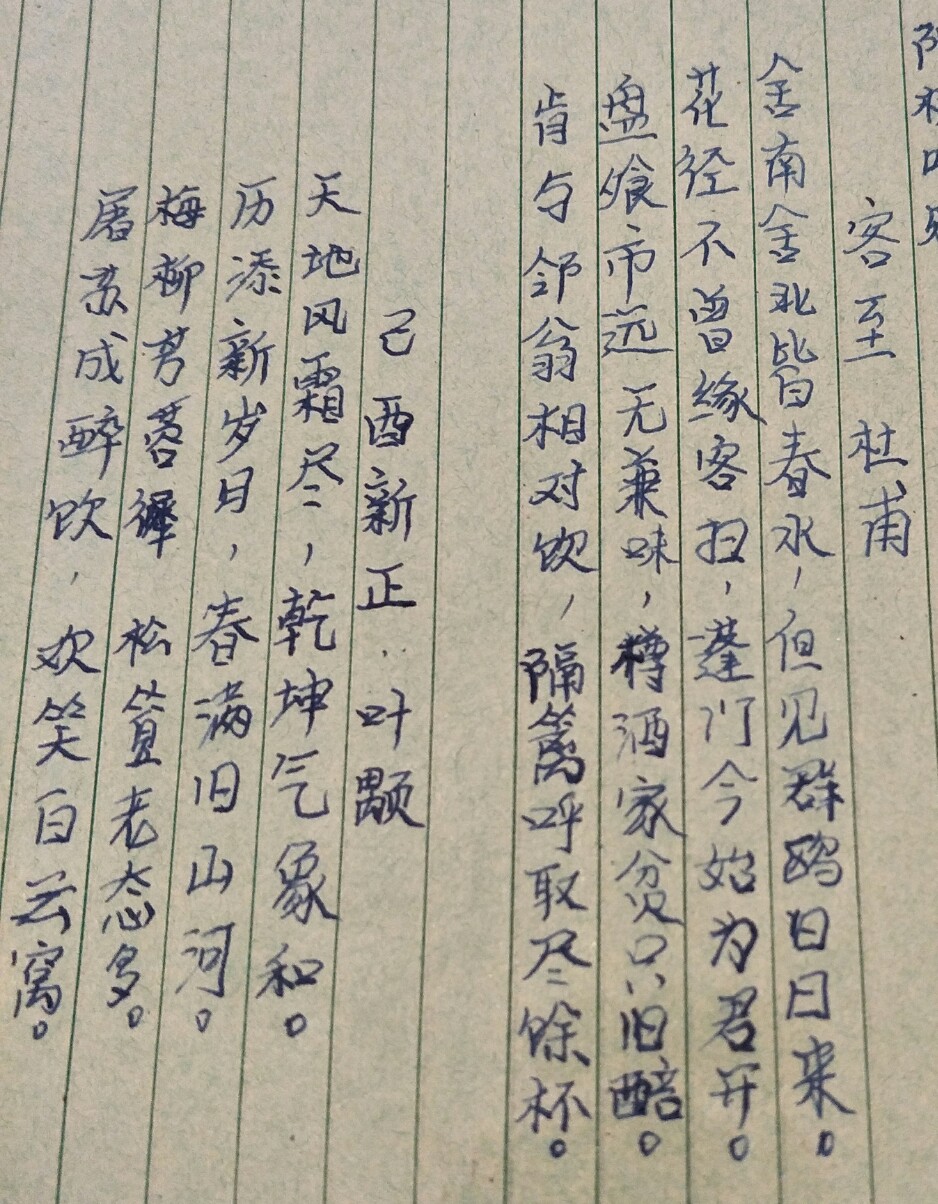 客至 杜甫
舍南舍北皆春水，但见群鸥日日来。
花径不曾缘客扫，蓬门今始为君开。
盘飧市远无兼味，樽酒家贫只旧醅。
肯与邻翁相对饮，隔篱呼取尽馀杯。
己酉新正·叶颙
天地风霜尽，乾坤气象和。
历添新岁日，春满旧山河。
梅柳芳容 松篁老态多。
屠苏成醉饮，欢笑白云窝。